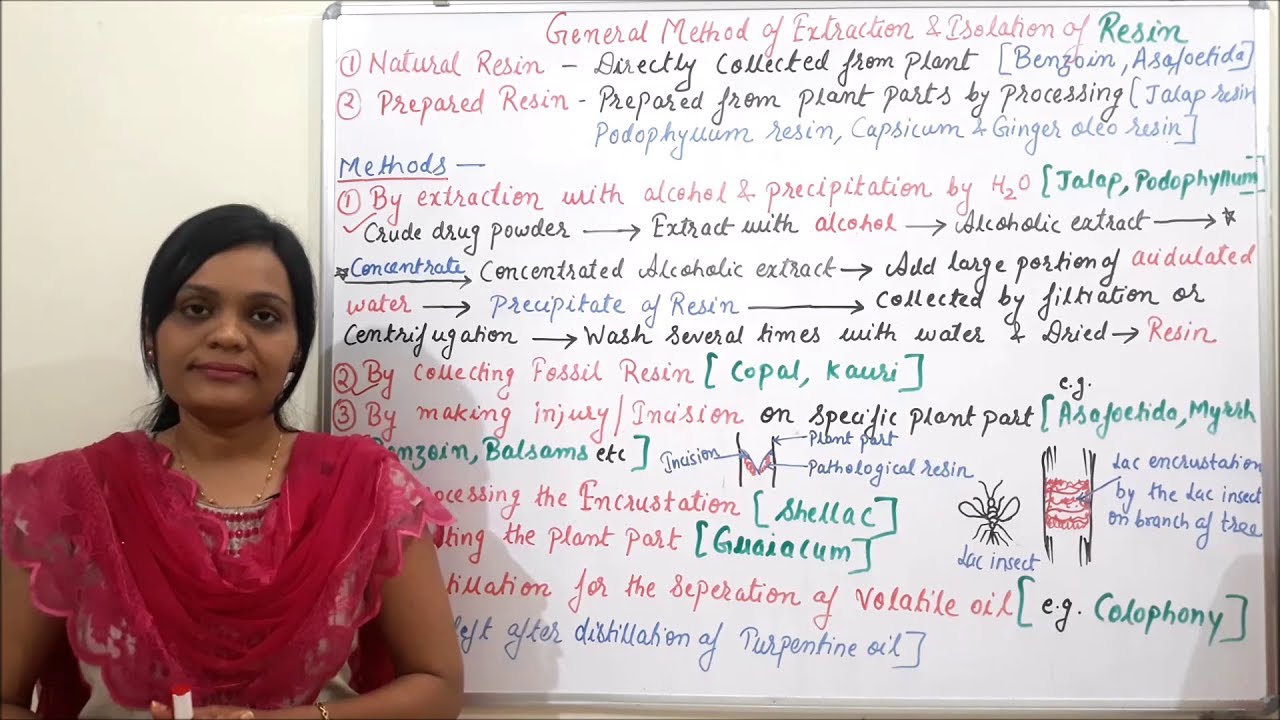 General Method of Extraction & Isolation of Resin
① Natural Resin – Directly collected from plant [Benzoin, Asafoetida]
② Prepared Resin - Prepared from plant parts by processing [Jalap resin
Podophyllum resin, Capsicum & Ginger oleo resin]
Methods —
① By extraction with alcohol & precipitation by H₂O [Jalap, Podophyllum]
✓ Crude drug powder → Extract with alcohol → Alcoholic extract → *
* Concentrate Concentrated Alcoholic extract → Add large portion of acidulated
water → Precipitate of Resin → Collected by filtration or
Centrifugation → Wash several times with water & Dried → Resin
② By collecting Fossil Resin [Copal, Kauri]
③ By making injury/Incision on specific plant part [e.g. Asafoetida, Myrrh
enzoin, Balsams etc]
Incision
Plant part
Pathological resin
Lac encrustation
by the Lac insect
on branch of tree
Lac insect
ocessing the Encrustation [Shellac]
ting the plant part [Guaiacum]
tillation for the seperation of volatile oil [e.g. Colophony]
left after distillation of Turpentine oil]